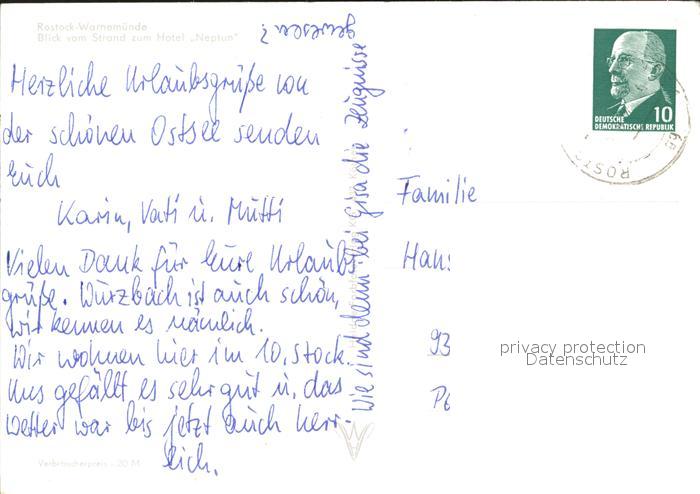 Rostock-Warnemünde
Blick vom Strand zum Hotel „Neptun"
Herzliche Urlaubsgrüße von
der schönen Ostsee senden
Euch
Karin, Vati u. Mutti
Vielen Dank für Eure Urlaubs-
grüße. Wurzbach ist auch schön,
wir kennen es nämlich.
Wir wohnen hier im 10. Stock.
Uns gefällt es sehr gut u. das
Wetter war bis jetzt auch herr-
lich.
Wie sind denn bei Gisa die Zeugnisse
gewesen?
Verbraucherpreis -,20 M
10
DEUTSCHE
DEMOKRATISCHE REPUBLIK
ROSTO
Familie
Han
93
privacy protection
Datenschutz